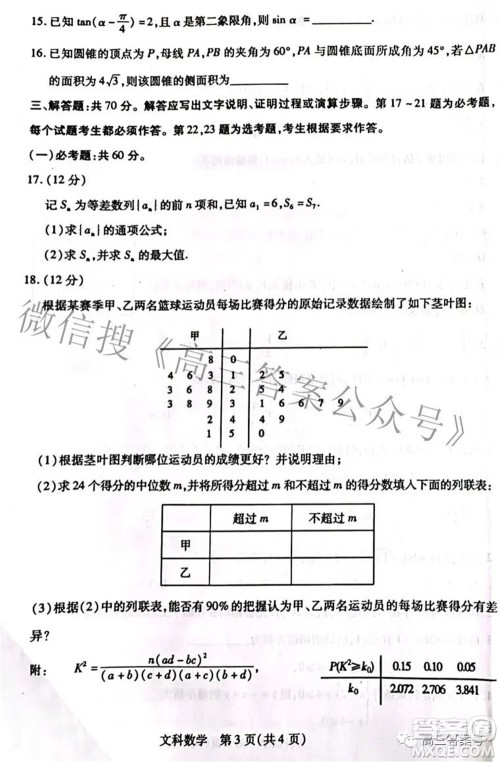 15.已知tan(α-π/4)=2,且α是第二象限角,则sin α=____
16.已知圆锥的顶点为P,母线PA,PB的夹角为60°,PA与圆锥底面所成角为45°,若△PAB
的面积为4√3,则该圆锥的侧面积为____
三、解答题:共70分。解答应写出文字说明、证明过程或演算步骤。第17~21题为必考题,
每个试题考生都必须作答。第22,23题为选考题,考生根据要求作答。
(一)必考题:共60分。
17.(12分)
记Sₙ为等差数列{aₙ}的前n项和,已知a₁=6,S₆=S₇.
(1)求{aₙ}的通项公式;
(2)求Sₙ,并求Sₙ的最大值.
18.(12分)
根据某赛季甲、乙两名篮球运动员每场比赛得分的原始记录数据绘制了如下茎叶图:
甲 乙
8 0
4 6 3 1 2 5
3 6 8 2 5 4
3 8 9 3 1 6 7 9
2 4 4 9
1 5 0
(1)根据茎叶图判断哪位运动员的成绩更好?并说明理由;
(2)求24个得分的中位数m,并将所得分超过m和不超过m的得分数填入下面的列联表:
超过m 不超过m
甲
乙
(3)根据(2)中的列联表,能否有90%的把握认为甲、乙两名运动员的每场比赛得分有差
异?
附: K²=n(ad-bc)²/(a+b)(c+d)(a+c)(b+d),
P(K²≥k₀) 0.15 0.10 0.05
k₀ 2.072 2.706 3.841
文科数学 第3页(共4页)
微信搜《高三答案公众号》
高三答案号